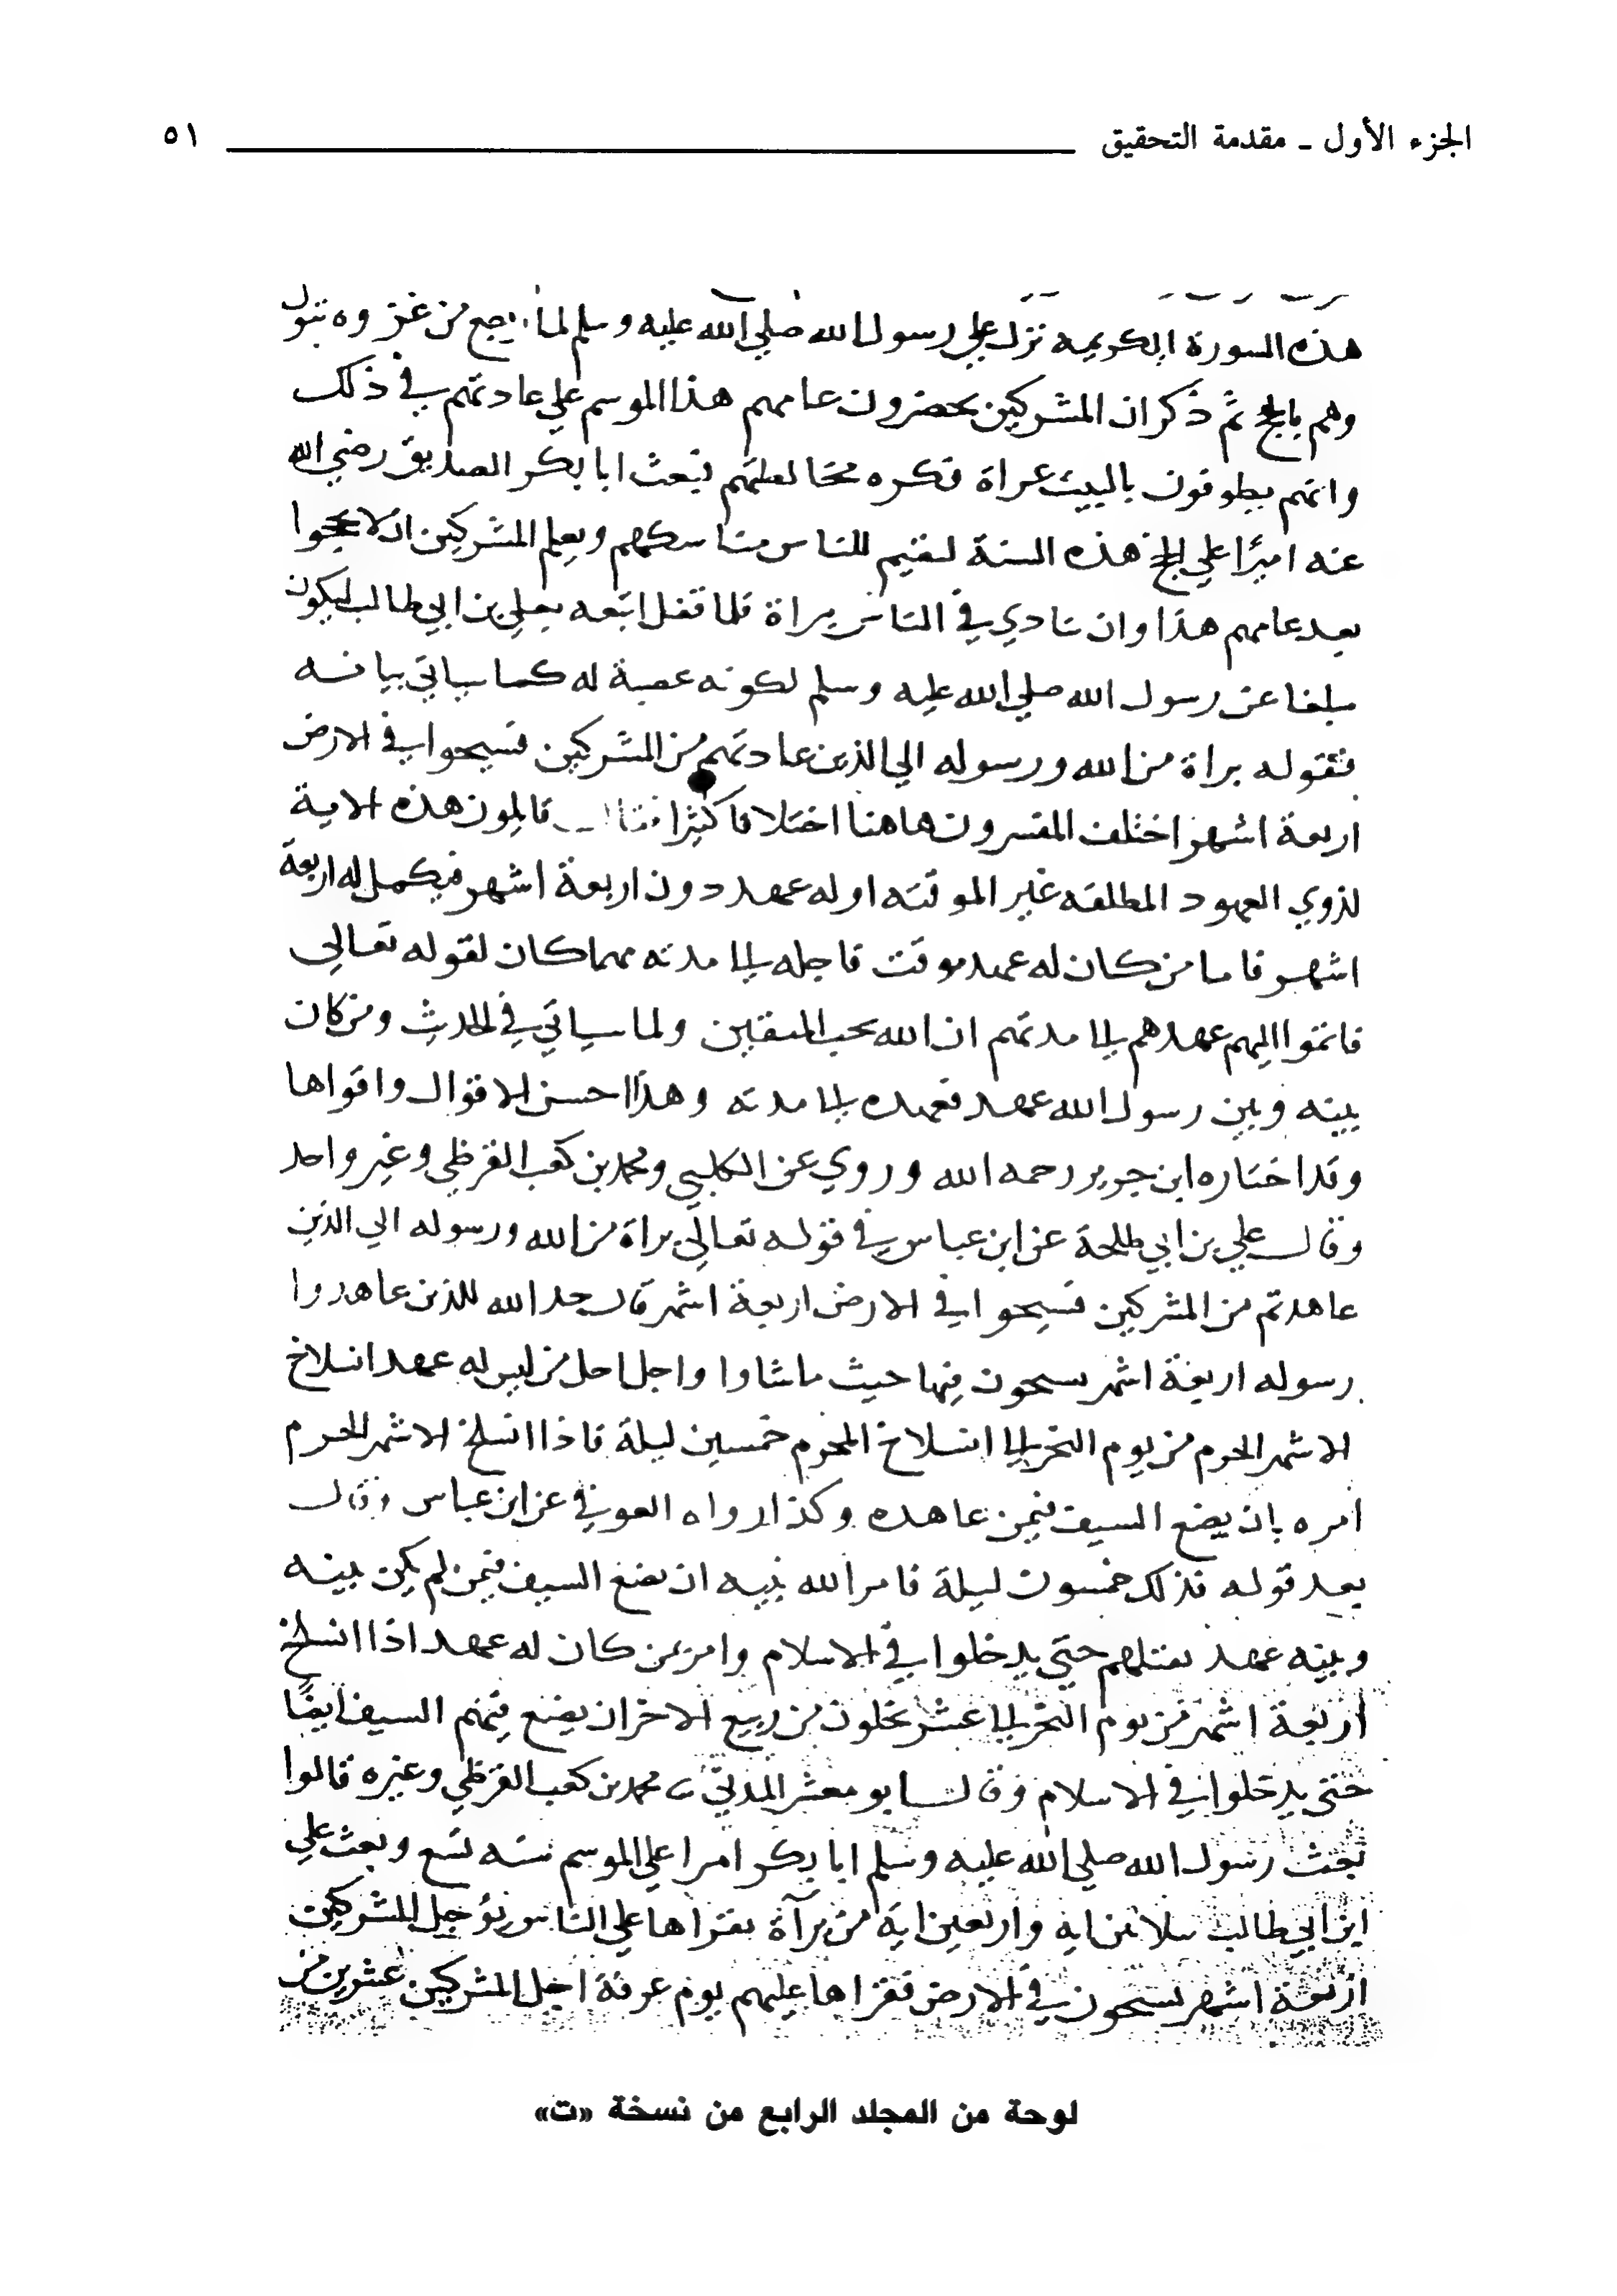 الجزء الأول ـ مقدمة التحقيق ٥١
هذه السورة الكريمة نزل علي رسول الله صلي الله عليه وسلم لما رجع من غزوه تبول
وهم بالحج ثم ذكر ان المشركين يحضرون عامهم هذا الموسم علي عادتهم في ذلك
وانهم يطوفون بالبيت عراة فكره مخالطتهم فبعث ابا بكر الصديق رضي الله
عنه اميرًا علي الحج هذه السنة ليقيم للناس مناسكهم ويعلم المشركين ان لا يحجوا
بعد عامهم هذا وان ينادي في الناس براة فلما قفل اتبعه بعلي بن ابي طالب ليكون
مبلغا عن رسول الله صلي الله عليه وسلم لكونه عصبة له كما سياتي بيانه
فقوله براة من الله ورسوله الي الذين عادتهم من المشركين فسيحوا في الارض
اربعة اشهر اختلف المفسرون هاهنا اختلافا كثيرا فقال قايلون هذه الاية
لذوي العهود المطلقه غير الموقته او له عهد دون اربعة اشهر فيكمل له اربعة
اشهر فاما من كان له عهد موقت فاجله الي مدته مهما كان لقوله تعالي
فاتموا اليهم عهدهم الي مدتهم ان الله يحب المتقين ولما سياتي في الحديث ومن كان
بينه وبين رسول الله عهد فعهده الي مدته وهذا احسن الاقوال واقواها
وقد اختاره ابن جرير رحمه الله وروي عن الكلبي ومحمد بن كعب القرظي وغير واحد
وقال علي بن ابي طلحة عن ابن عباس في قوله تعالي براة من الله ورسوله الي الذين
عاهدتم من المشركين فسيحوا في الارض اربعة اشهر قال حد الله للذين عاهدوا
رسوله اربعة اشهر يسيحون فيها حيث ما شاوا واجل اجل من ليس له عهد انسلاخ
الاشهر الحرم من يوم النحر الي انسلاخ المحرم خمسين ليلة فاذا انسلخ الاشهر الحرم
امره بان يضع السيف فيمن عاهده وكذا رواه العوفي عن ابن عباس وقال
بعد قوله فذلك خمسون ليلة فامر الله نبيه ان يضع السيف فيمن لم يكن بينه
وبينه عهد يقتلهم حتي يدخلوا في الاسلام وامر بمن كان له عهد اذا انسلخ
اربعة اشهر من يوم النحر الي عشر يخلون من ربيع الاخر ان يضع فيهم السيف ايضًا
حتي يدخلوا في الاسلام وقال ابو معشر المدني محمد بن كعب القرظي وغيره قالوا
بعث رسول الله صلي الله عليه وسلم ابا بكر امرا علي الموسم سنه تسع وبعث علي
ابن ابي طالب بثلاثين ايه واربعين ايه من برآة يقراها علي الناس يؤجل المشركين
اربعة اشهر يسيحون في الارض فقراها عليهم يوم عرفة اجل المشركين عشرين من
لوحة من المجلد الرابع من نسخة «ت»